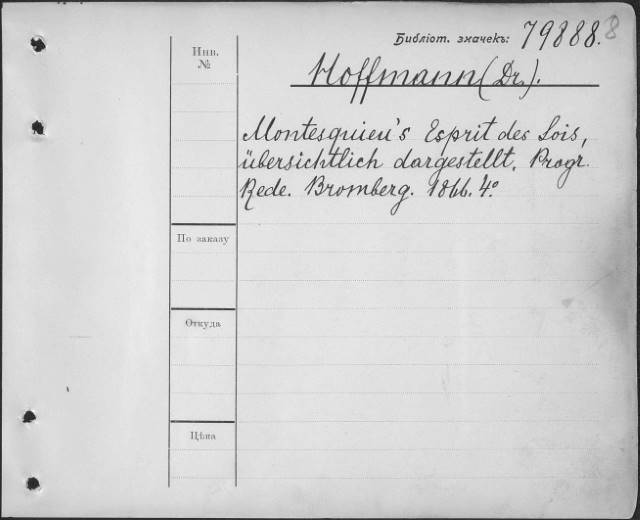 Библіот. значекъ: 79888. 8
Инв.
№
Hoffmann (Dr.).
Montesquieu's Esprit des Lois,
übersichtlich dargestellt. Progr.
Rede. Bromberg. 1866. 4.º
По заказу
Откуда
Цѣна